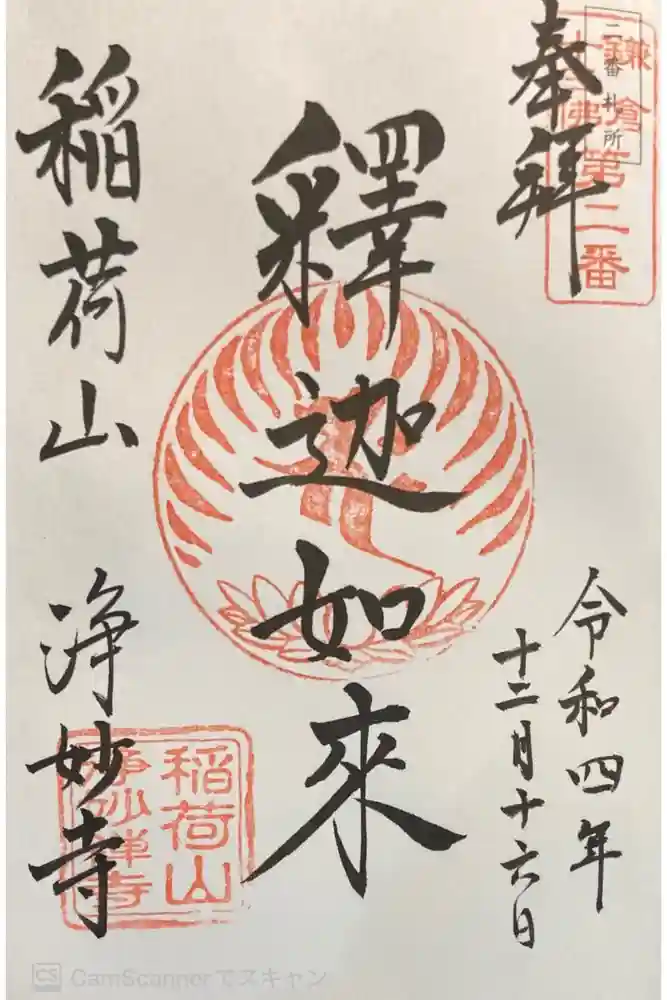 奉拝
二番札所
鎌倉
十三佛
第二番
釋迦如來
令和四年
十二月十六日
稲荷山
浄妙寺
稲荷山
浄妙禅寺
CS CamScannerでスキャン